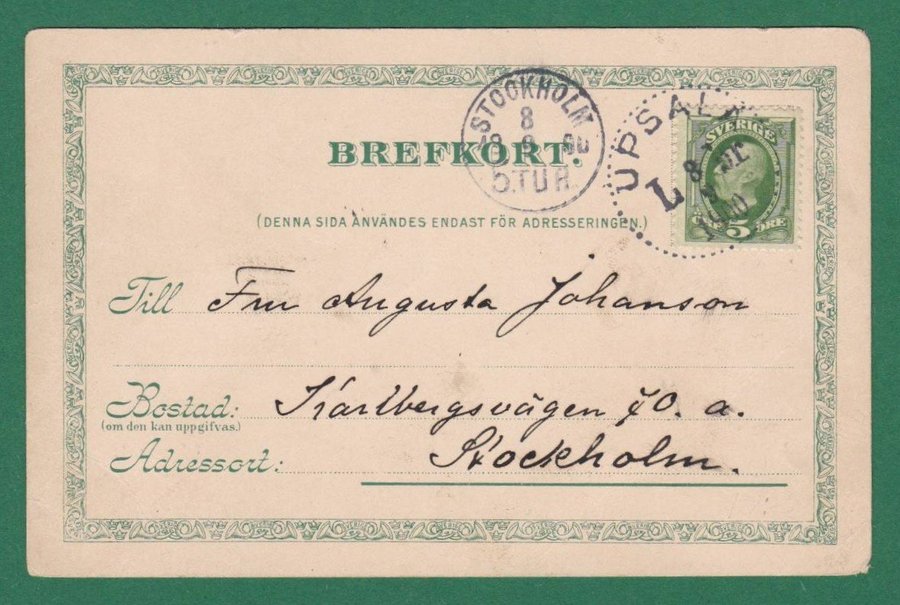 STOCKHOLM
8
5.TUR
UPSALA
L
8
1900
SVERIGE
5
ÖRE
BREFKORT.
(DENNA SIDA ANVÄNDES ENDAST FÖR ADRESSERINGEN.)
Till Fru Augusta Johanson
Bostad: Karlbergsvägen 40. a.
(om den kan uppgifvas.)
Adressort: Stockholm.